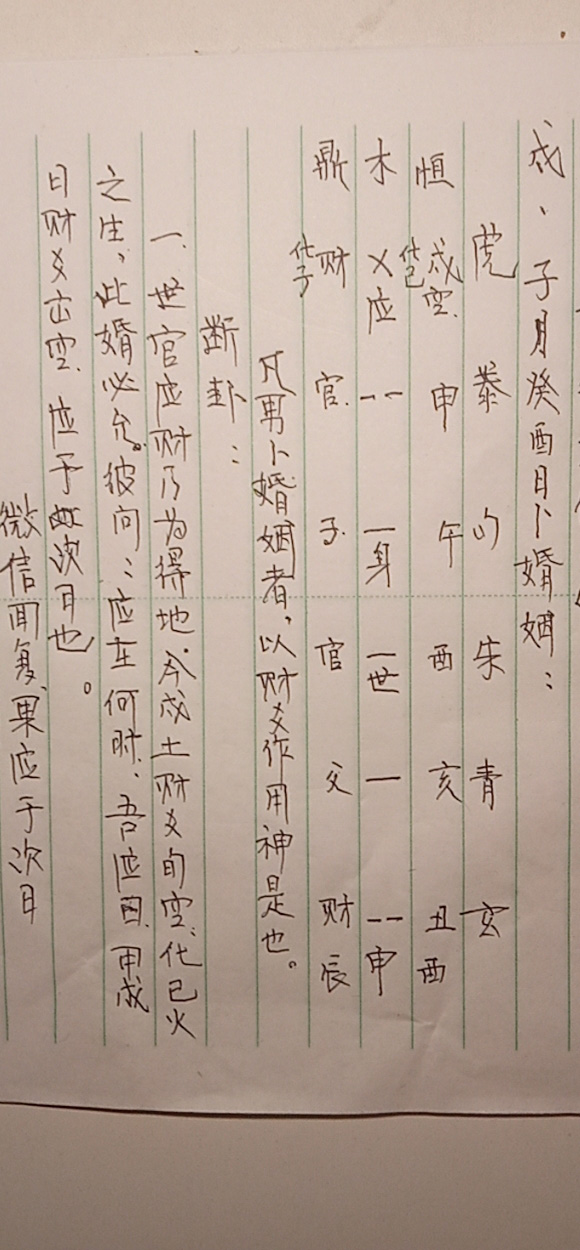 戌、子月癸酉日卜婚姻：
虎 螣 勾 朱 青 玄
恒 戌空 化巳 申 午 酉 亥 丑 酉
木 乂应 -- 一身 一世 一 -- 申
鼎 财 化子 官 子 官 父 财 辰
凡男卜婚姻者，以财爻作用神是也。
断卦：
一、世官应财乃为得地，今戌土财爻旬空，化巳火
之生，此婚必允。彼问：应在何时，吾应曰，甲戌
日财爻出空，应于次日也。
微信回复，果应于次日